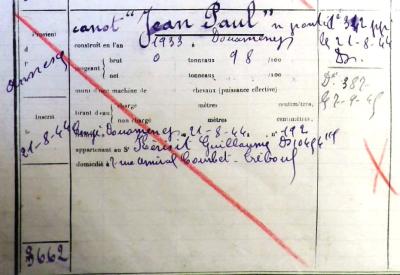 canot "Jean Paul" n ponté
Provient
construit en l'an 1933 à Douarnenez
d
jaugeant brut 0 tonneaux 98 /100
net tonneaux /100
muni d'une machine de chevaux (puissance effective)
tirant d'eau en charge mètres centimètres,
non chargé mètres centimètres,
Inscrit
le 21-8-44
Douarnenez 21-8-44, n° 192
appartenant au Sr Guillaume Dz
domicilié à 7 rue amiral Courbet - Tréboul
le 21-8-44
Dz.
Dn 382
le 2-9-45
3662